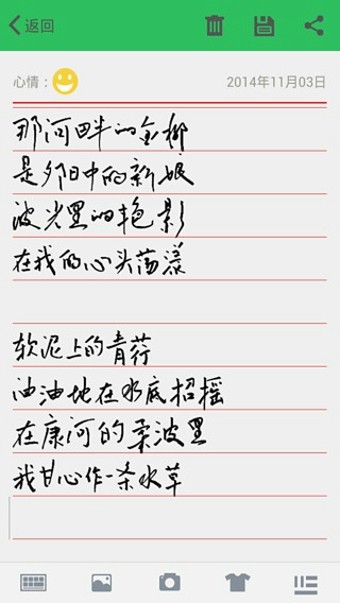 返回
心情：
2014年11月03日
那河畔的金柳
是夕阳中的新娘
波光里的艳影
在我的心头荡漾
软泥上的青荇
油油地在水底招摇
在康河的柔波里
我甘心作一条水草